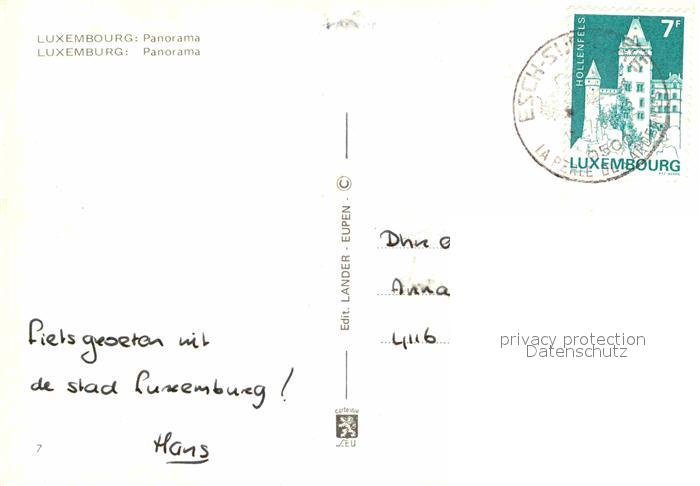 LUXEMBOURG: Panorama
LUXEMBURG: Panorama
7F
HOLLENFELS
LUXEMBOURG
ESCH-SU
LA PERLE DE
Edit. LANDER - EUPEN - ©
Dhr
Anna
4116
privacy protection
Datenschutz
Fietsgroeten uit
de stad Luxemburg!
Hans
carte vue
LEU
7